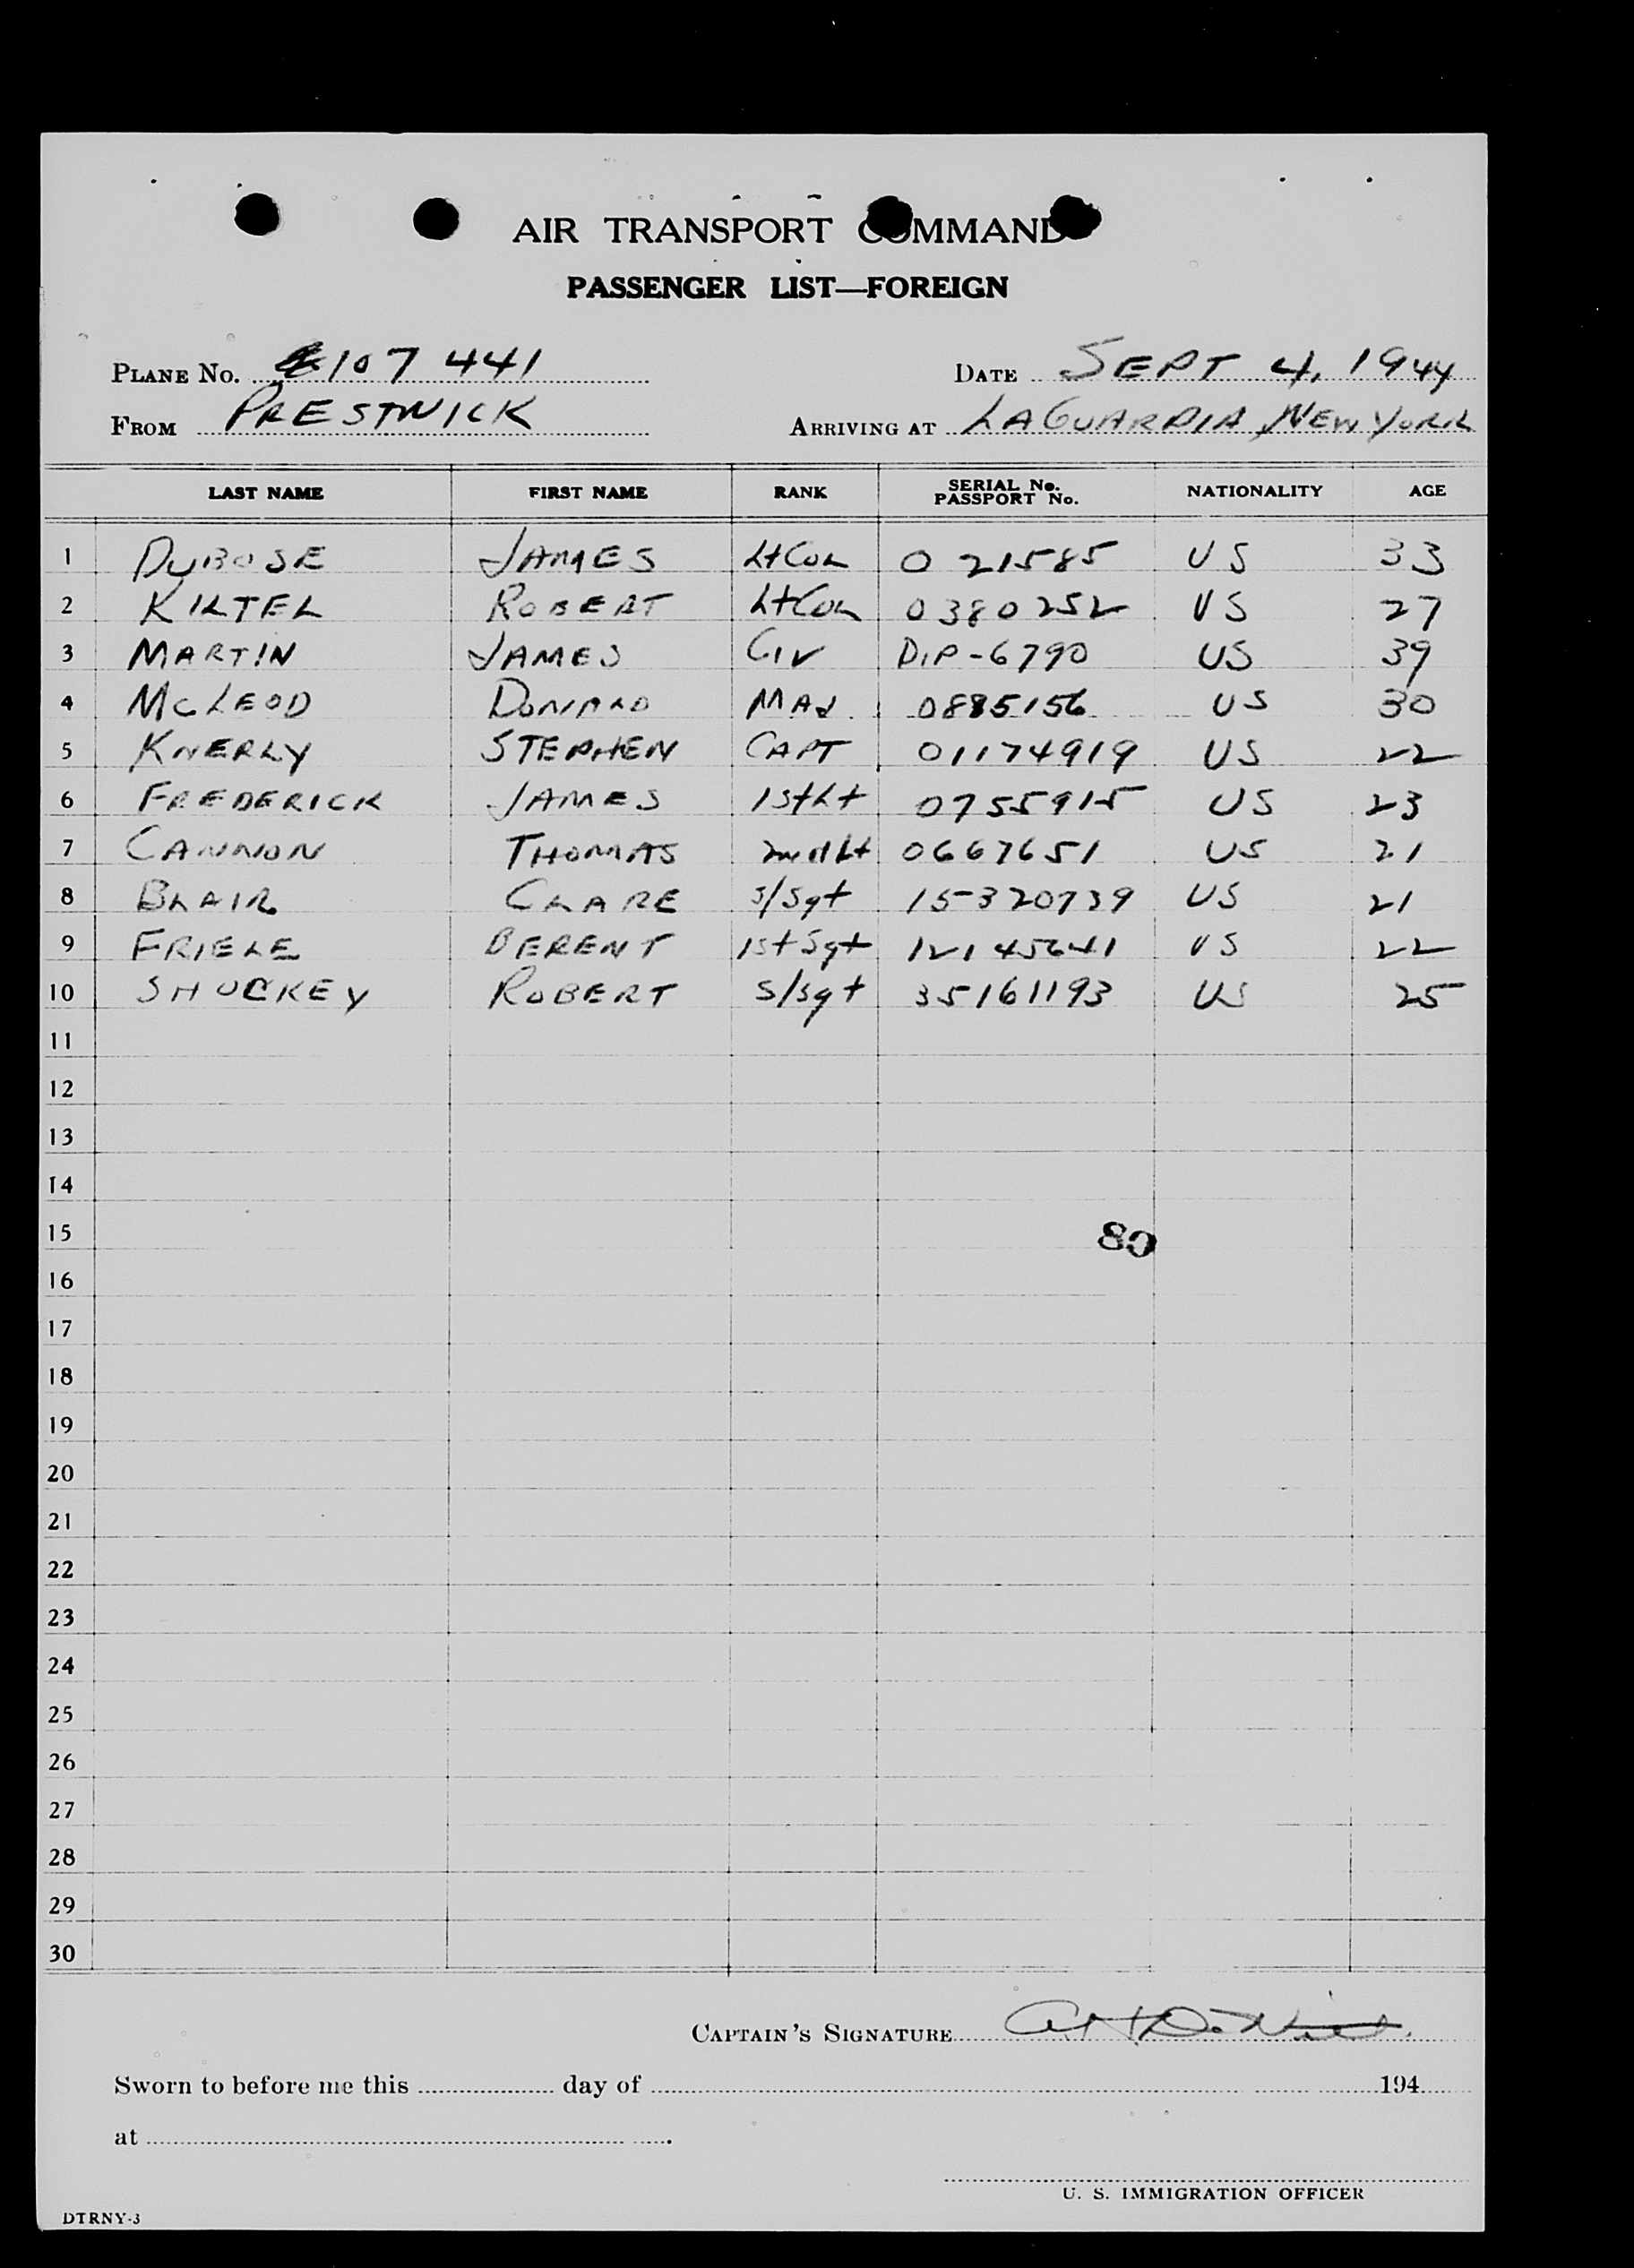 AIR TRANSPORT COMMAND
PASSENGER LIST—FOREIGN
PLANE No. 107 441 DATE SEPT 4, 1944
FROM PRESTWICK ARRIVING AT LAGUARDIA, NEW YORK
LAST NAME FIRST NAME RANK SERIAL No. PASSPORT No. NATIONALITY AGE
1 DUBOSE JAMES Lt COL O 21585 US 33
2 KILTEL ROBERT Lt COL 0380252 US 27
3 MARTIN JAMES CIV DIP-6790 US 39
4 MCLEOD DONALD MAJ. 0885156 US 30
5 KNERLY STEPHEN CAPT 01174919 US 22
6 FREDERICK JAMES 1st Lt 0755915 US 23
7 CANNON THOMAS 2nd Lt 0667651 US 21
8 BLAIR CLARE S/Sgt 15320739 US 21
9 FRIELE BERENT 1st Sgt 12145641 US 22
10 SHOCKEY ROBERT S/Sgt 35161193 US 25
11
12
13
14
15
80
16
17
18
19
20
21
22
23
24
25
26
27
28
29
30
CAPTAIN'S SIGNATURE
Sworn to before me this day of 194
at
U. S. IMMIGRATION OFFICER
DTRNY-3